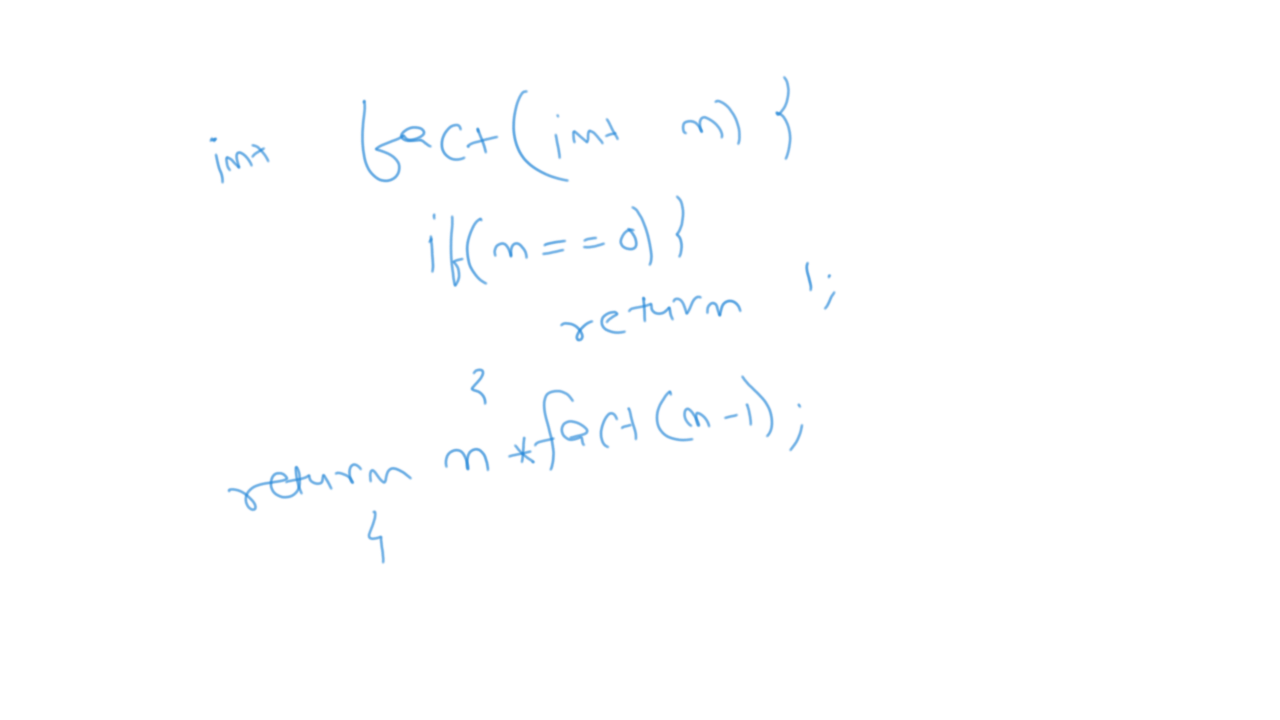 int fact(int n) {
if(n == 0) {
return 1;
}
return n * fact(n-1);
}